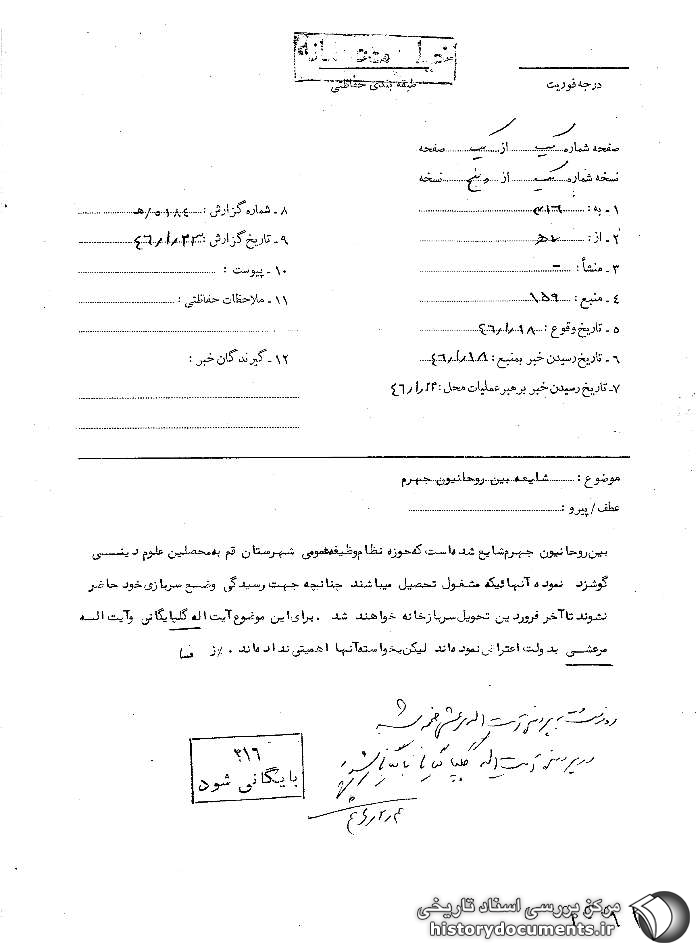 خیلی محرمانه
طبقه بندی حفاظتی
درجه فوریت
صفحه شماره یک از یک صفحه
نسخه شماره یک از پنج نسخه
۱ـ به : ۳۱۶
۲ـ از :
۳ـ منشأ : -
۴ـ منبع : ۱۵۹
۵ ـ تاریخ وقوع : ۴۶/۱/۱۸
۶ ـ تاریخ رسیدن خبر بمنبع : ۴۶/۱/۱۸
۷ـ تاریخ رسیدن خبر برهبر عملیات محل : ۴۶/۱/
۸ ـ شماره گزارش :
۹ ـ تاریخ گزارش : ۴۶/۱/۲۳
۱۰ ـ پیوست :
۱۱ ـ ملاحظات حفاظتی :
۱۲ ـ گیرندگان خبر :
موضوع : شایعه بین روحانیون جهرم
عطف/پیرو :
بین روحانیون جهرم شایع شده است که حوزه نظام وظیفه عمومی شهرستان قم به محصلین علوم دینی
گوشزد نموده آنهائیکه مشغول تحصیل میباشند چنانچه جهت رسیدگی وضع سربازی خود حاضر
نشوند تا آخر فروردین تحویل سربازخانه خواهند شد . برای این موضوع آیت اله گلپایگانی و آیت اله
مرعشی بدولت اعتراض نموده اند لیکن بخواسته آنها اهمیتی نداده اند .
در پرونده آیت اله گلپایگانی بایگانی شود
۳۱۶
بایگانی شود
مرکز بررسی اسناد تاریخی
historydocuments.ir